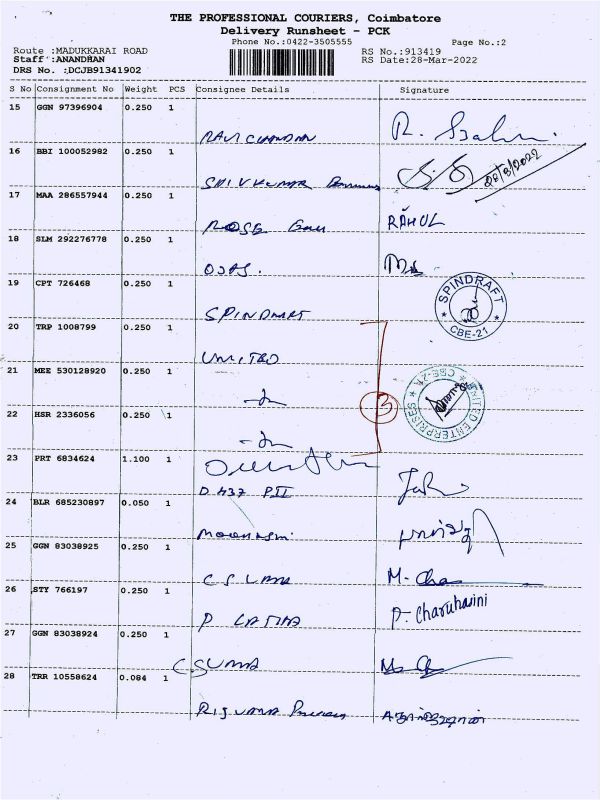 THE PROFESSIONAL COURIERS, Coimbatore
Delivery Runsheet - PCK
Phone No.:0422-3505555
Page No.:2
Route :MADUKKARAI ROAD
RS No.:913419
Staff :ANANDHAN
RS Date:28-Mar-2022
DRS No. :DCJB91341902
S No Consignment No Weight PCS Consignee Details Signature
15 GGN 97396904 0.250 1
RAVI CHANDRAN R.
16 BBI 100052982 0.250 1
SHIV KUMAR 28/3/2022
17 MAA 286557944 0.250 1
ROSE RAHUL
18 SLM 292276778 0.250 1
OJAS.
19 CPT 726468 0.250 1
SPINDRAFT SPINDRAFT CBE-21
20 TRP 1008799 0.250 1
UNITED
21 MEE 530128920 0.250 1
3 UNITED ENTERPRISES CBE-21
22 HSR 2336056 0.250 1
23 PRT 6834624 1.100 1
D 437 PII
24 BLR 685230897 0.050 1
25 GGN 83038925 0.250 1
26 STY 766197 0.250 1
P LATHA P. Charuhasini
27 GGN 83038924 0.250 1
C SUMA
28 TRR 10558624 0.084 1